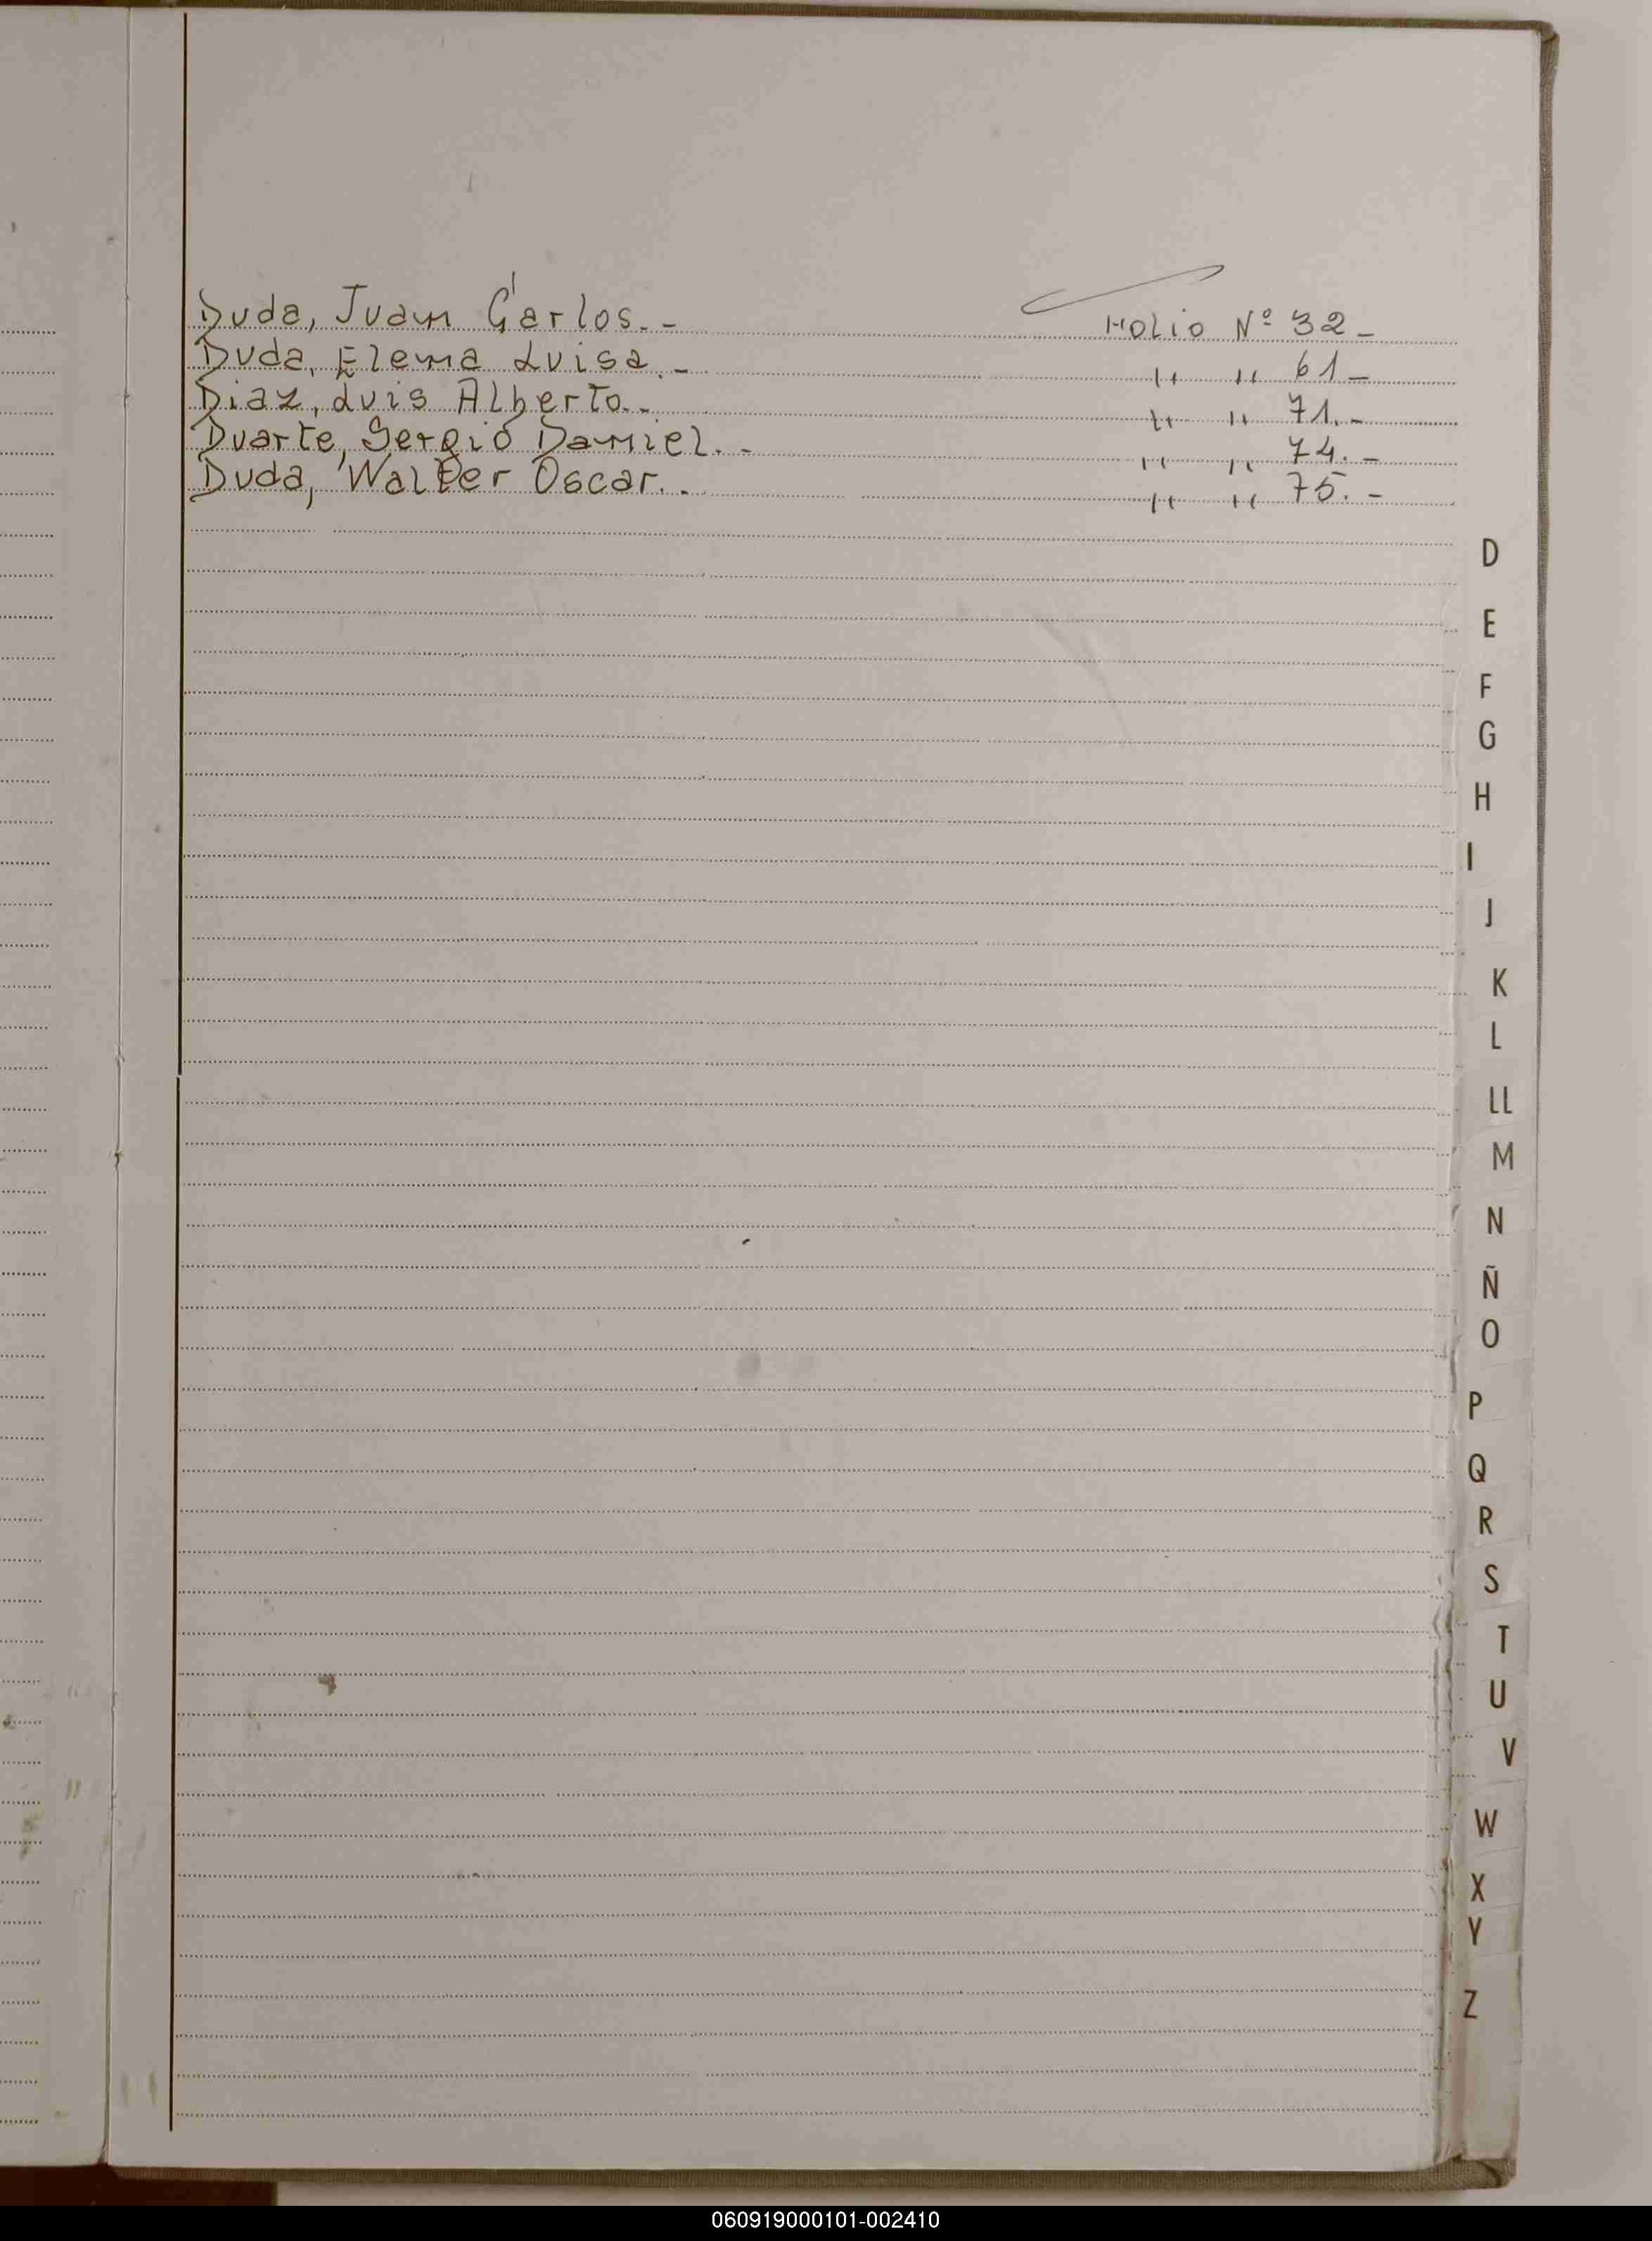 Duda, Juan Carlos.- Folio Nº 32-
Duda, Elena Luisa.- " " 61-
Diaz, Luis Alberto.- " " 71.-
Duarte, Sergio Daniel.- " " 74.-
Duda, Walter Oscar.- " " 75.-
D
E
F
G
H
I
J
K
L
LL
M
N
Ñ
O
P
Q
R
S
T
U
V
W
X
Y
Z
060919000101-002410